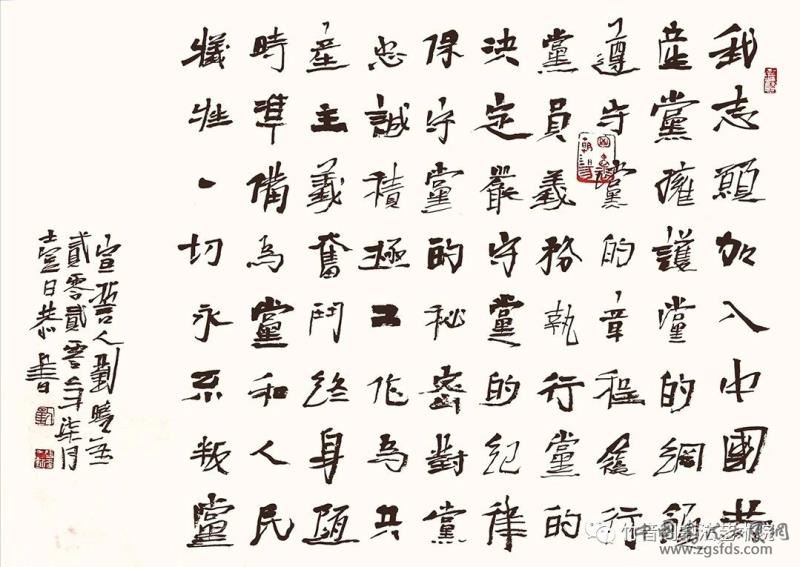 我志願加入中國共
產黨擁護黨的綱領
遵守黨的章程履行
黨員義務執行黨的
決定嚴守黨的紀律
保守黨的秘密對黨
忠誠積極工作為共
產主義奮鬥終身隨
時準備為黨和人民
犧牲一切永不叛黨
宣誓人劉
貳零貳零年柒月
壹日恭書
www.zgsfds.com